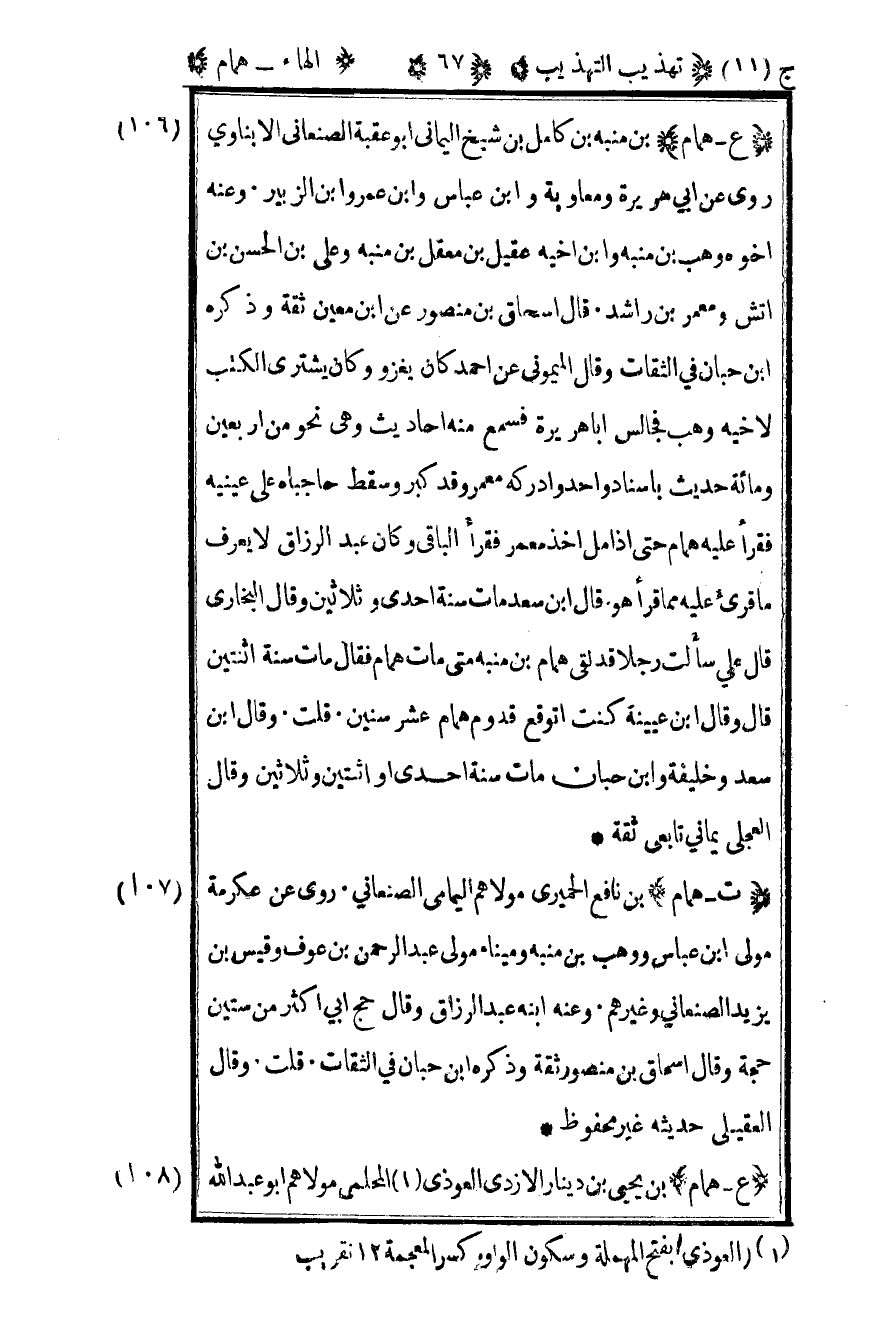 ج (١١) ﴿ تهذيب التهذيب ﴾ ﴿ ٦٧ ﴾ ﴿ الهاء ـ همام ﴾
﴿ ع ـ همام ﴾ بن منبه بن كامل بن شيخ اليمانى ابو عقبة الصنعانى الابناوي (١٠٦)
روى عن ابي هريرة ومعاوية و ابن عباس وابن عمر وابن الزبير · وعنه
اخوه وهب بن منبه وابن اخيه عقيل بن معقل بن منبه وعلى بن الحسن بن
اتش ومعمر بن راشد · قال اسحاق بن منصور عن ابن معين ثقة و ذكره
ابن حبان في الثقات وقال الميمونى عن احمد كان يغزو وكان يشترى الكتب
لاخيه وهب فجالس اباهريرة فسمع منه احاديث وهى نحو من اربعين
ومائة حديث باسناد واحد وادركه معمر وقد كبر وسقط حاجباه على عينيه
فقرأ عليه همام حتى اذا مل اخذ معمر فقرأ الباقى وكان عبد الرزاق لايعرف
ماقرئ عليه مماقرأ هو · قال ابن سعد مات سنة احدى و ثلاثين وقال البخارى
قال علي سألت رجلا قد لقى همام بن منبه متى مات همام فقال مات سنة اثنتين
قال وقال ابن عيينة كنت اتوقع قدوم همام عشر سنين · قلت · وقال ابن
سعد وخليفة وابن حبان مات سنة احدى او اثنتين وثلاثين وقال
العجلى يماني تابعى ثقة *
﴿ ت ـ همام ﴾ بن نافع الحميرى مولاهم اليمامى الصنعاني · روى عن عكرمة (١٠٧)
مولى ابن عباس ووهب بن منبه وميناء مولى عبدالرحمن بن عوف وقيس بن
يزيد الصنعاني وغيرهم · وعنه ابنه عبدالرزاق وقال حج ابي اكثر من ستين
حجة وقال اسحاق بن منصور ثقة وذكره ابن حبان في الثقات · قلت · وقال
العقيلى حديثه غير محفوظ *
﴿ ع ـ همام ﴾ بن يحيى بن دينار الازدى العوذى (١) المحلمى مولاهم ابو عبدالله (١٠٨)
(١) (العوذي) بفتح المهملة وسكون الواو وكسر المعجمة ١٢ تقريب